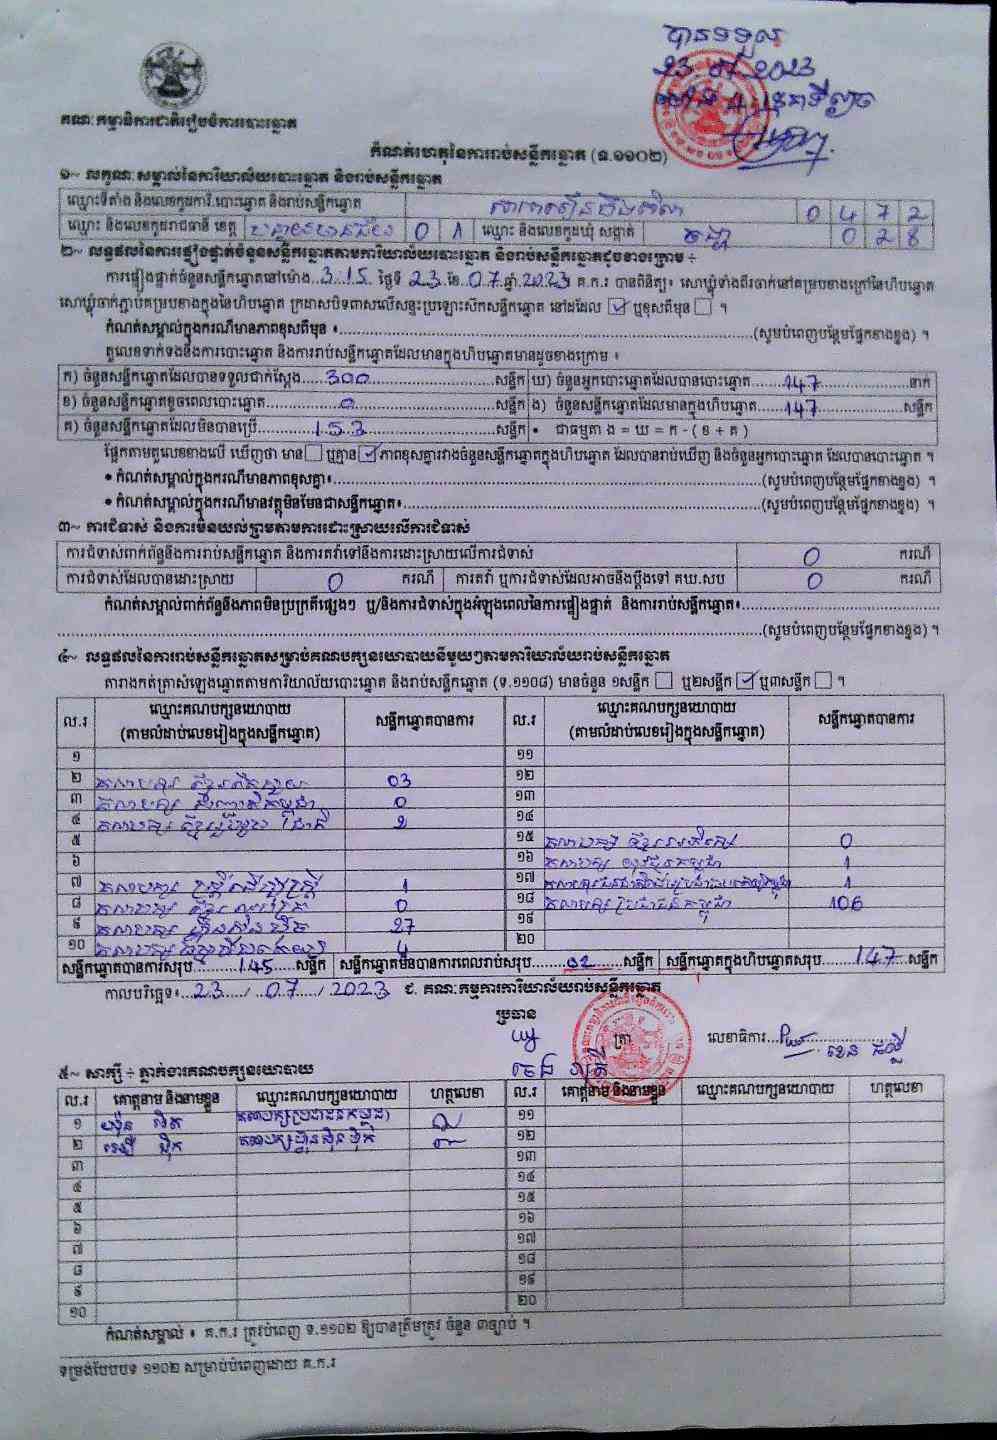 បានទទួល
23.07.2023
គណៈកម្មាធិការជាតិរៀបចំការបោះឆ្នោត
កំណត់ហេតុនៃការរាប់សន្លឹកឆ្នោត (ទ.១១០២)
១~ លក្ខណៈសម្គាល់នៃការិយាល័យបោះឆ្នោត និងរាប់សន្លឹកឆ្នោត
ឈ្មោះទីតាំង និងលេខកូដការិ.បោះឆ្នោត និងរាប់សន្លឹកឆ្នោត 0 4 7 2
ឈ្មោះ និងលេខកូដរាជធានី ខេត្ត បន្ទាយមានជ័យ 0 1 ឈ្មោះ និងលេខកូដឃុំ សង្កាត់ 0 2 8
២~ លទ្ធផលនៃការផ្ទៀងផ្ទាត់ចំនួនសន្លឹកឆ្នោតតាមការិយាល័យបោះឆ្នោត និងរាប់សន្លឹកឆ្នោតដូចខាងក្រោម ÷
ការផ្ទៀងផ្ទាត់ចំនួនសន្លឹកឆ្នោតនៅម៉ោង..3:15..ថ្ងៃទី 23 ខែ 07 ឆ្នាំ 2023 គ.ក.រ បានពិនិត្យ៖ សោឃ្លុំទាំងពីរចាក់នៅគម្របខាងក្រៅនៃហិបឆ្នោត
សោឃ្លុំចាក់ភ្ជាប់គម្របខាងក្នុងនៃហិបឆ្នោត ក្រដាសបិទពាសលើសន្ទះប្រឡោះរសឹកសន្លឹកឆ្នោត នៅដដែល ☑ ឬខុសពីមុន ☐ ។
កំណត់សម្គាល់ក្នុងករណីមានភាពខុសពីមុន ៖..........(សូមបំពេញបន្ថែមផ្នែកខាងខ្នង) ។
តួលេខទាក់ទងនឹងការបោះឆ្នោត និងការរាប់សន្លឹកឆ្នោតដែលមានក្នុងហិបឆ្នោតមានដូចខាងក្រោម ៖
ក) ចំនួនសន្លឹកឆ្នោតដែលបានទទួលជាក់ស្តែង......300......សន្លឹក ឃ) ចំនួនអ្នកបោះឆ្នោតដែលបានបោះឆ្នោត......147......នាក់
ខ) ចំនួនសន្លឹកឆ្នោតខូចពេលបោះឆ្នោត......0......សន្លឹក ង) ចំនួនសន្លឹកឆ្នោតដែលមានក្នុងហិបឆ្នោត......147......សន្លឹក
គ) ចំនួនសន្លឹកឆ្នោតដែលមិនបានប្រើ......153......សន្លឹក • ជាធម្មតា ង = ឃ = ក - ( ខ + គ )
ផ្អែកតាមតួលេខខាងលើ ឃើញថា មាន ☐ ឬគ្មាន ☑ ភាពខុសគ្នារវាងចំនួនសន្លឹកឆ្នោតក្នុងហិបឆ្នោត ដែលបានរាប់ឃើញ និងចំនួនអ្នកបោះឆ្នោត ដែលបានបោះឆ្នោត ។
• កំណត់សម្គាល់ក្នុងករណីមានភាពខុសគ្នា៖..........(សូមបំពេញបន្ថែមផ្នែកខាងខ្នង) ។
• កំណត់សម្គាល់ក្នុងករណីមានវត្ថុមិនមែនជាសន្លឹកឆ្នោត៖..........(សូមបំពេញបន្ថែមផ្នែកខាងខ្នង) ។
៣~ ការជំទាស់ និងការមិនយល់ព្រមតាមការដោះស្រាយលើការជំទាស់
ការជំទាស់ពាក់ព័ន្ធនឹងការរាប់សន្លឹកឆ្នោត និងការតវ៉ាទៅនឹងការដោះស្រាយលើការជំទាស់ 0 ករណី
ការជំទាស់ដែលបានដោះស្រាយ 0 ករណី ការតវ៉ា ឬការជំទាស់ដែលអាចនឹងប្តឹងទៅ គឃ.សប 0 ករណី
កំណត់សម្គាល់ពាក់ព័ន្ធនឹងភាពមិនប្រក្រតីផ្សេងៗ ឬ/និងការជំទាស់ក្នុងអំឡុងពេលនៃការផ្ទៀងផ្ទាត់ និងការរាប់សន្លឹកឆ្នោត៖..........
..........(សូមបំពេញបន្ថែមផ្នែកខាងខ្នង) ។
៤~ លទ្ធផលនៃការរាប់សន្លឹកឆ្នោតសម្រាប់គណបក្សនយោបាយនីមួយៗតាមការិយាល័យរាប់សន្លឹកឆ្នោត
តារាងកត់ត្រាសំឡេងឆ្នោតតាមការិយាល័យបោះឆ្នោត និងរាប់សន្លឹកឆ្នោត (ទ.១១០៨) មានចំនួន ១សន្លឹក ☐ ឬ២សន្លឹក ☑ ឬ៣សន្លឹក ☐ ។
ល.រ ឈ្មោះគណបក្សនយោបាយ (តាមលំដាប់លេខរៀងក្នុងសន្លឹកឆ្នោត) សន្លឹកឆ្នោតបានការ ល.រ ឈ្មោះគណបក្សនយោបាយ (តាមលំដាប់លេខរៀងក្នុងសន្លឹកឆ្នោត) សន្លឹកឆ្នោតបានការ
១ ១១
២ គណបក្ស 03 ១២
៣ គណបក្ស 0 ១៣
៤ គណបក្ស 2 ១៤
៥ ១៥ គណបក្ស 0
៦ ១៦ គណបក្ស យុវជនកម្ពុជា 1
៧ គណបក្ស 1 ១៧ 1
៨ គណបក្ស 0 ១៨ គណបក្ស ប្រជាជនកម្ពុជា 106
៩ គណបក្ស ហ្វ៊ុនស៊ិនប៉ិច 27 ១៩
១០ គណបក្ស 4 ២០
សន្លឹកឆ្នោតបានការសរុប......145......សន្លឹក សន្លឹកឆ្នោតមិនបានការពេលរាប់សរុប......02......សន្លឹក សន្លឹកឆ្នោតក្នុងហិបឆ្នោតសរុប......147......សន្លឹក
កាលបរិច្ឆេទ៖ 23 / 07 / 2023 ជ. គណៈកម្មការការិយាល័យរាប់សន្លឹកឆ្នោត
ប្រធាន
ត្រា លេខាធិការ
៥~ សាក្សី ÷ ភ្នាក់ងារគណបក្សនយោបាយ
ល.រ គោត្តនាម និងនាមខ្លួន ឈ្មោះគណបក្សនយោបាយ ហត្ថលេខា ល.រ គោត្តនាម និងនាមខ្លួន ឈ្មោះគណបក្សនយោបាយ ហត្ថលេខា
១ គណបក្សប្រជាជនកម្ពុជា ១១
២ គណបក្សហ្វ៊ុនស៊ិនប៉ិច ១២
៣ ១៣
៤ ១៤
៥ ១៥
៦ ១៦
៧ ១៧
៨ ១៨
៩ ១៩
១០ ២០
កំណត់សម្គាល់ ៖ គ.ក.រ ត្រូវបំពេញ ទ.១១០២ ឱ្យបានត្រឹមត្រូវ ចំនួន ៣ច្បាប់ ។
ទម្រង់បែបបទ ១១០២ សម្រាប់បំពេញដោយ គ.ក.រ